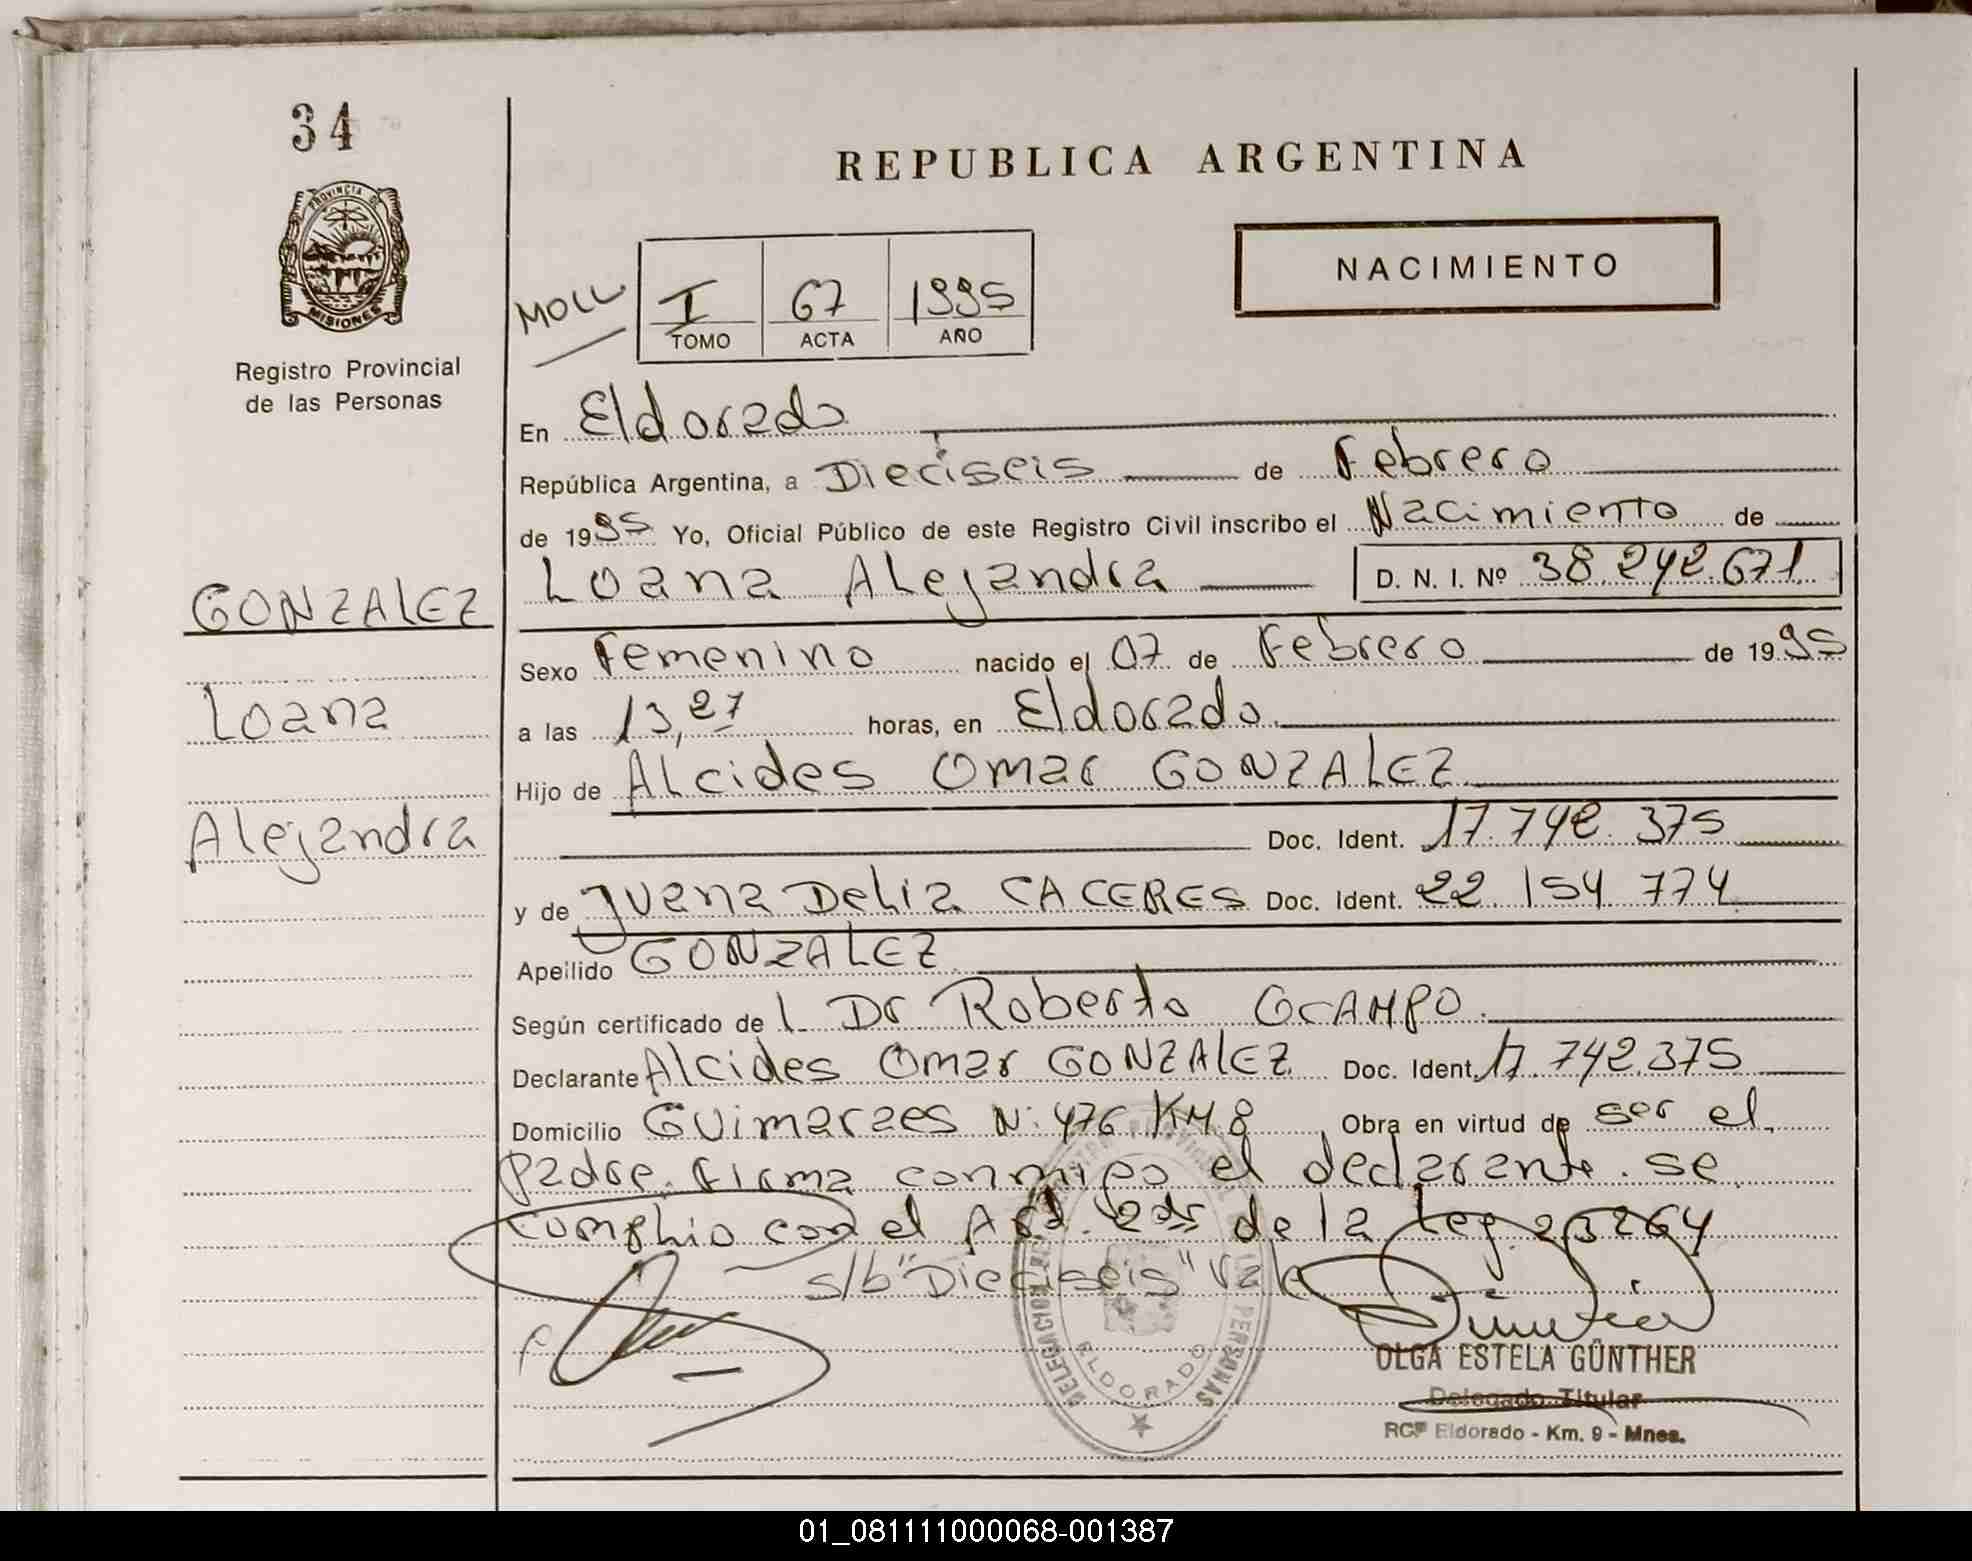 34
PROVINCIA DE
MISIONES
Registro Provincial
de las Personas
GONZALEZ
Loana
Alejandra
REPUBLICA ARGENTINA
NACIMIENTO
MOLU
I 67 1995
TOMO ACTA AÑO
En Eldorado
República Argentina, a Dieciseis de Febrero
de 1995 Yo, Oficial Público de este Registro Civil inscribo el Nacimiento de
Loana Alejandra D. N. I. Nº 38.242.671
Sexo Femenino nacido el 07 de Febrero de 1995
a las 13,27 horas, en Eldorado
Hijo de Alcides Omar GONZALEZ
Doc. Ident. 17.742.375
y de Juana Delia CACERES Doc. Ident. 22 154 774
Apellido GONZALEZ
Según certificado de l Dr Roberto OCAMPO
Declarante Alcides Omar GONZALEZ Doc. Ident. 17.742.375
Domicilio Guimaraes N: 476 KM 8 Obra en virtud de ser el
padre. Firma conmigo el declarante. se
cumplio con el Art. 2do de la Ley 23264
s/b "Dieciseis" Vale
DELEGACION PERSONAS
ELDORADO
OLGA ESTELA GÜNTHER
Delegado Titular
RCP Eldorado - Km. 9 - Mnes.
01_081111000068-001387